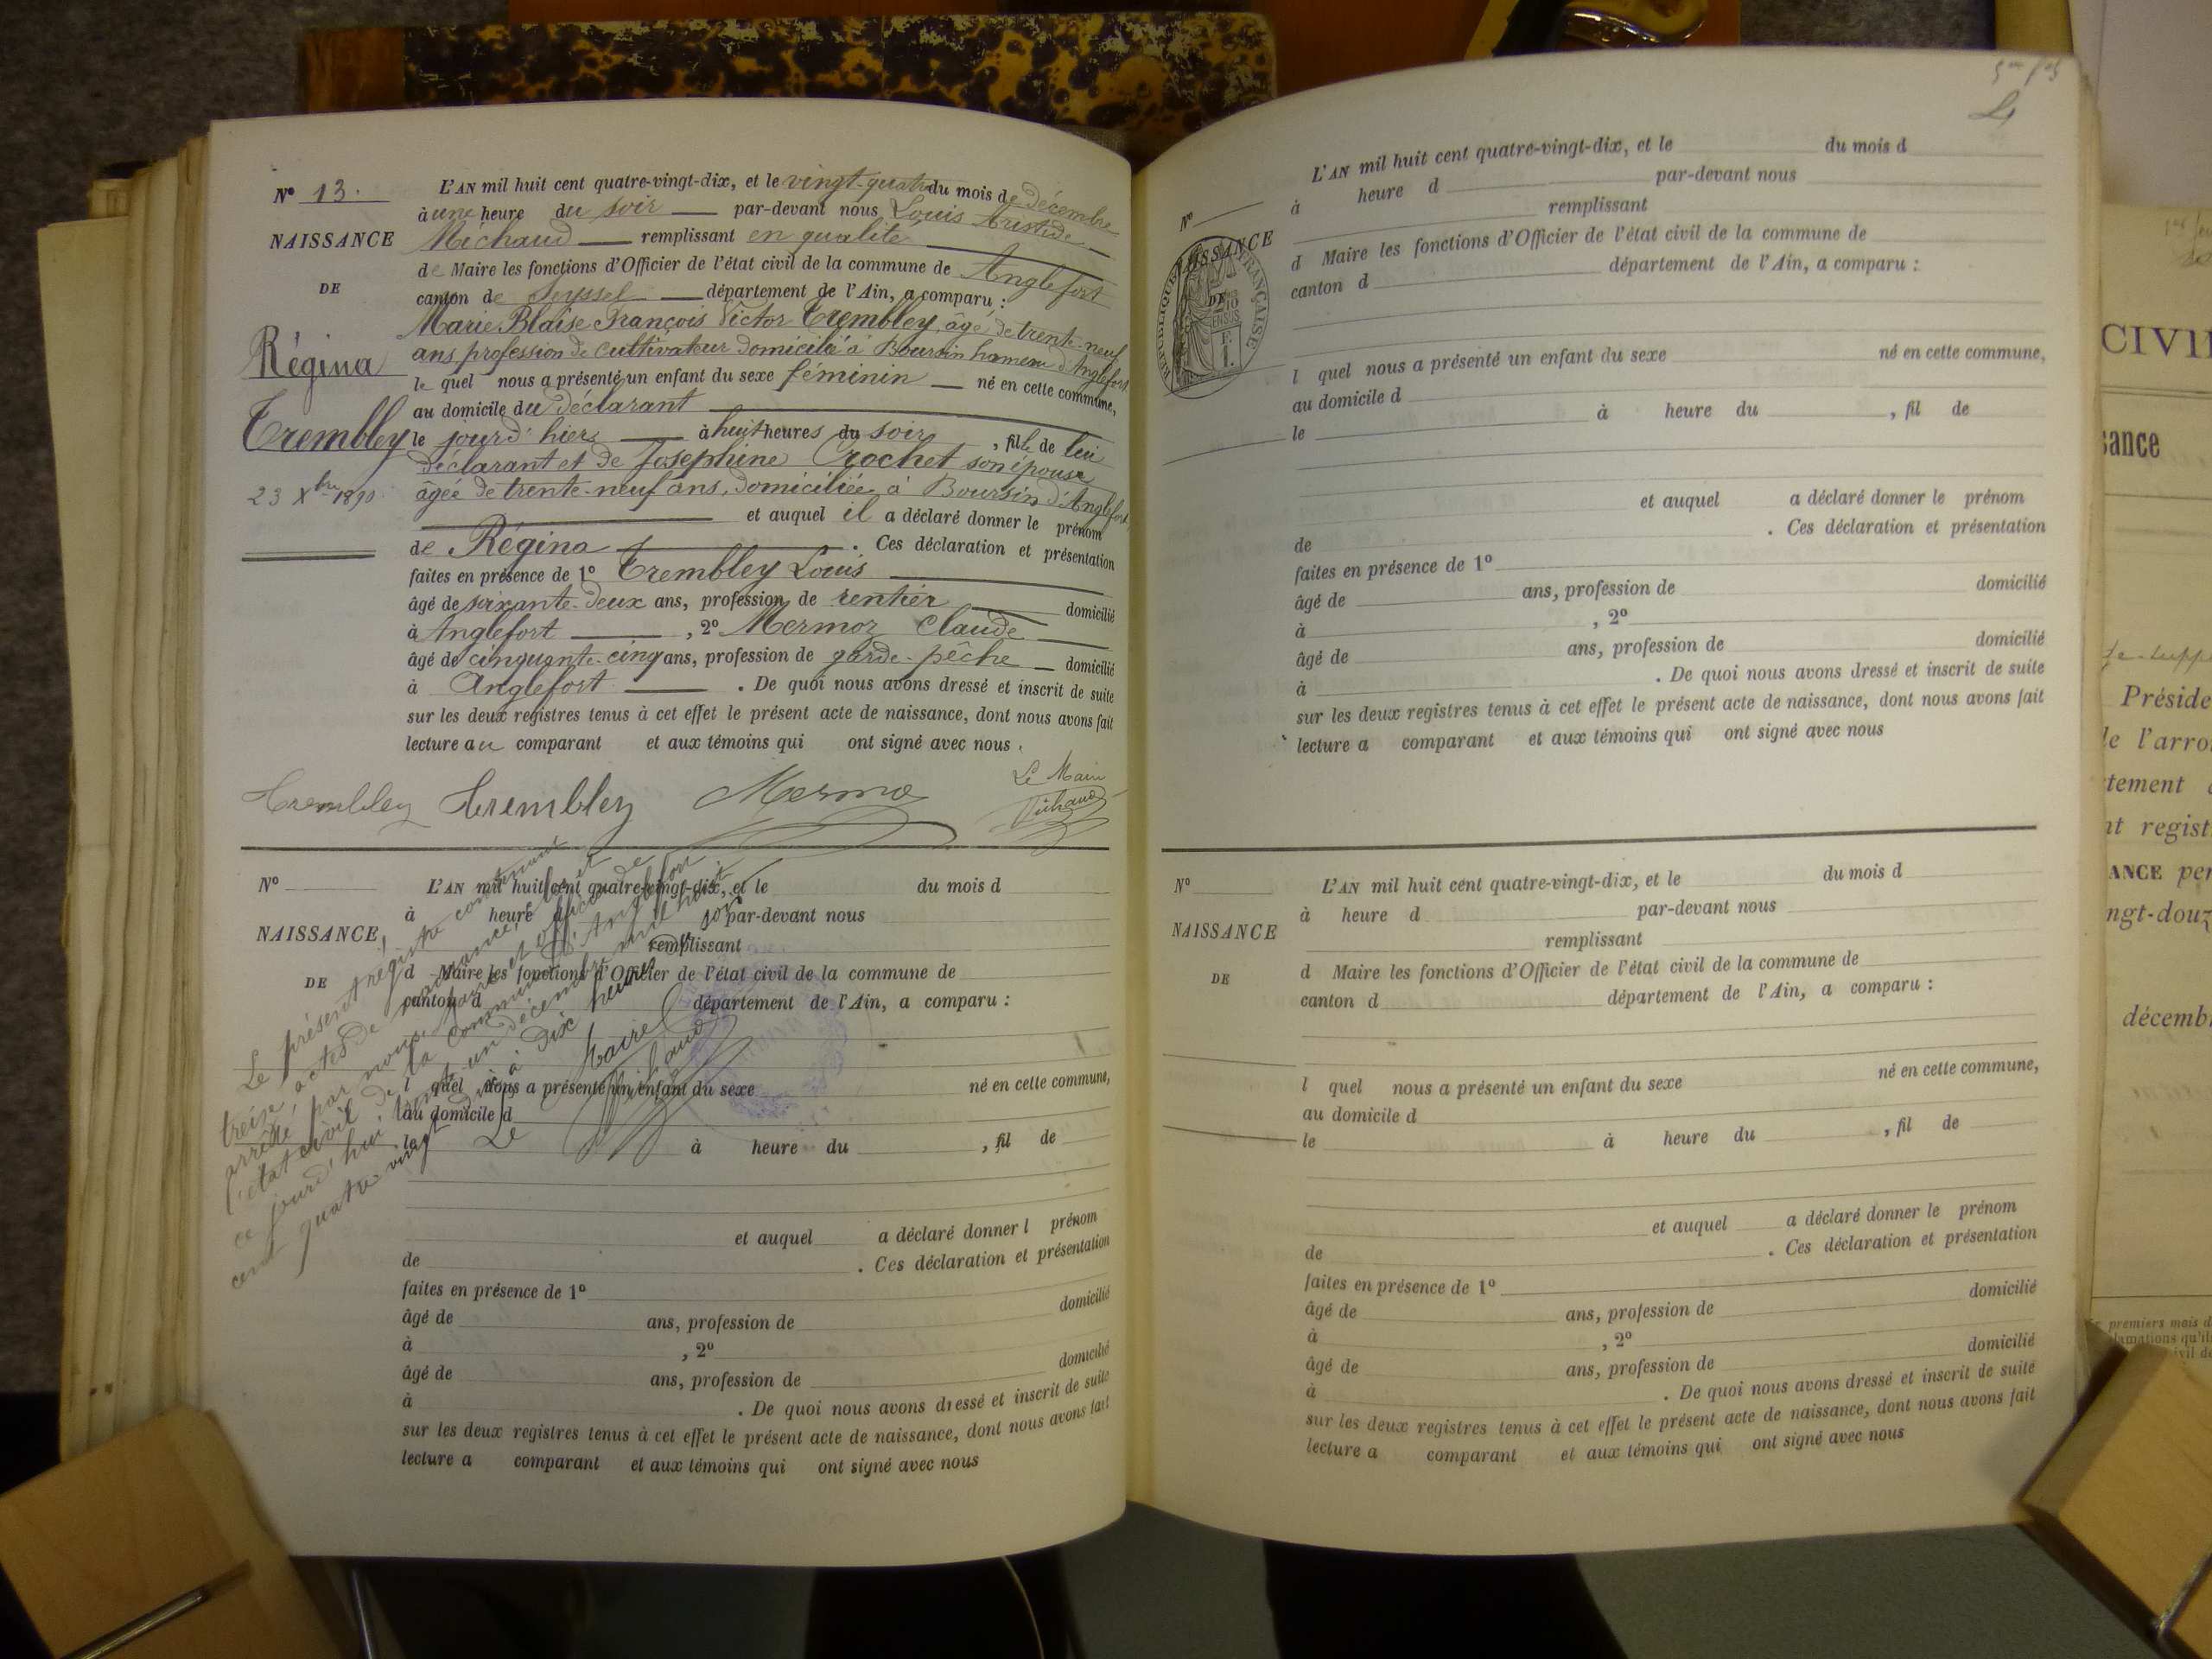 Nº 13.
NAISSANCE
DE
Régina
Trembley
23 Xbre 1890
L'AN mil huit cent quatre-vingt-dix, et le vingt-quatre du mois de décembre
à une heure du soir par-devant nous Louis Aristide
Michaud remplissant en qualité
de Maire les fonctions d'Officier de l'état civil de la commune de Anglefort
canton de Seyssel département de l'Ain, a comparu :
Marie Blaise François Victor Trembley, âgé de trente-neuf
ans profession de cultivateur domicilié à Boursin hameau d'Anglefort
le quel nous a présenté un enfant du sexe féminin né en cette commune,
au domicile du déclarant
le jourd'hier à huit heures du soir, fille de lui
déclarant et de Joséphine Crochet son épouse
âgée de trente-neuf ans, domiciliée à Boursin d'Anglefort
et auquel il a déclaré donner le prénom
de Régina . Ces déclaration et présentation
faites en présence de 1º Trembley Louis
âgé de soixante-deux ans, profession de rentier domicilié
à Anglefort , 2º Mermoz Claude
âgé de cinquante-cinq ans, profession de garde-pêche domicilié
à Anglefort . De quoi nous avons dressé et inscrit de suite
sur les deux registres tenus à cet effet le présent acte de naissance, dont nous avons fait
lecture au comparant et aux témoins qui ont signé avec nous.
Trembley Trembley Mermoz Le Maire
Michaud
Nº
NAISSANCE
DE
L'AN mil huit cent quatre-vingt-dix, et le du mois d
à heure d par-devant nous
remplissant
d Maire les fonctions d'Officier de l'état civil de la commune de
canton d département de l'Ain, a comparu :
l quel nous a présenté un enfant du sexe né en cette commune,
au domicile d
le à heure du , fil de
et auquel a déclaré donner l prénom
de . Ces déclaration et présentation
faites en présence de 1º
âgé de ans, profession de domicilié
à , 2º
âgé de ans, profession de domicilié
à . De quoi nous avons dressé et inscrit de suite
sur les deux registres tenus à cet effet le présent acte de naissance, dont nous avons fait
lecture a comparant et aux témoins qui ont signé avec nous
Le présent registre contenant
treize actes de naissance,
arrêté par nous, Maire et officier de
l'état civil de la commune d'Anglefort
ce jourd'hui trente-un décembre mil huit
cent quatre-vingt dix à dix heures du soir
Le Maire
Michaud
4
Nº
NAISSANCE
DE
RÉPUBLIQUE FRANÇAISE
L'AN mil huit cent quatre-vingt-dix, et le du mois d
à heure d par-devant nous
remplissant
d Maire les fonctions d'Officier de l'état civil de la commune de
canton d département de l'Ain, a comparu :
l quel nous a présenté un enfant du sexe né en cette commune,
au domicile d
le à heure du , fil de
et auquel a déclaré donner le prénom
de . Ces déclaration et présentation
faites en présence de 1º
âgé de ans, profession de domicilié
à , 2º
âgé de ans, profession de domicilié
à . De quoi nous avons dressé et inscrit de suite
sur les deux registres tenus à cet effet le présent acte de naissance, dont nous avons fait
lecture a comparant et aux témoins qui ont signé avec nous
Nº
NAISSANCE
DE
L'AN mil huit cent quatre-vingt-dix, et le du mois d
à heure d par-devant nous
remplissant
d Maire les fonctions d'Officier de l'état civil de la commune de
canton d département de l'Ain, a comparu :
l quel nous a présenté un enfant du sexe né en cette commune,
au domicile d
le à heure du , fil de
et auquel a déclaré donner le prénom
de . Ces déclaration et présentation
faites en présence de 1º
âgé de ans, profession de domicilié
à , 2º
âgé de ans, profession de domicilié
à . De quoi nous avons dressé et inscrit de suite
sur les deux registres tenus à cet effet le présent acte de naissance, dont nous avons fait
lecture a comparant et aux témoins qui ont signé avec nous
CIVIL
sance
Préside
de l'arro
tement
nt regist
ANCE per
ngt-douz
décemb
premiers mois d